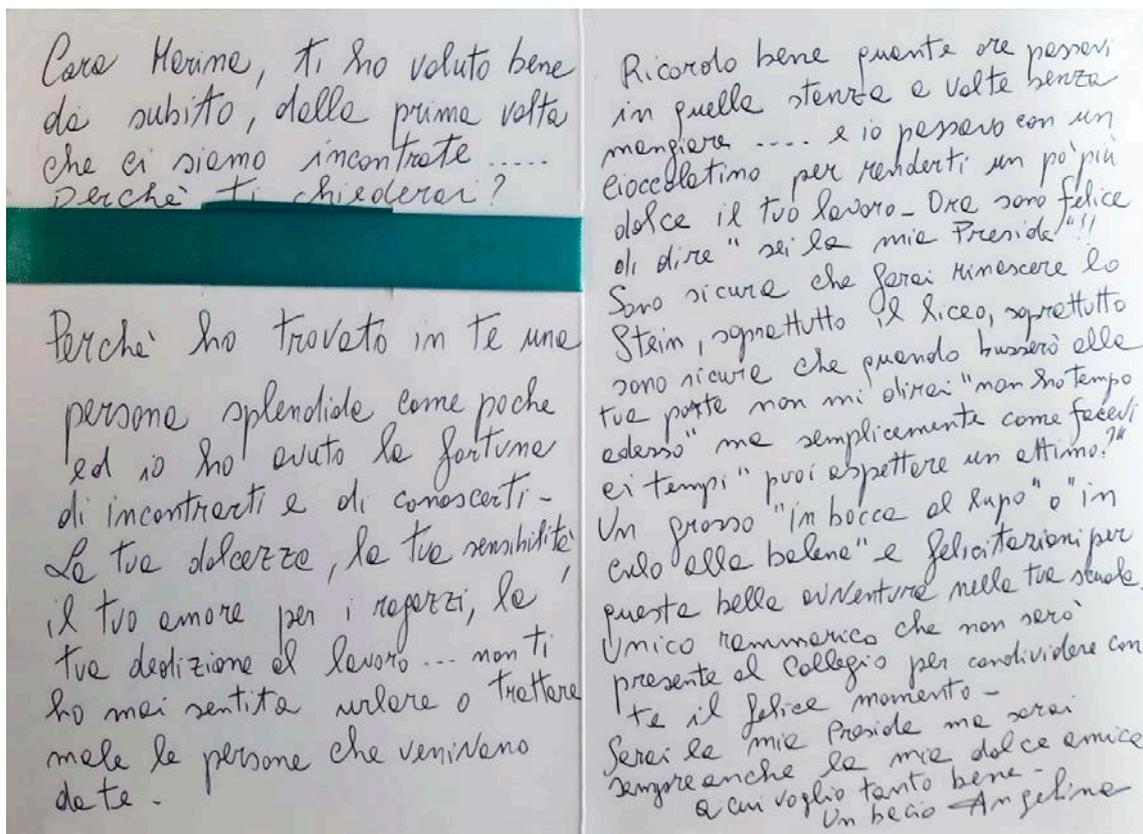 Cara Marina, ti ho voluto bene
da subito, dalla prima volta
che ci siamo incontrate .....
Perchè ti chiederai?
Perchè ho trovato in te una
persona splendida come poche
ed io ho avuto la fortuna
di incontrarti e di conoscerti -
La tua dolcezza, la tua sensibilità,
il tuo amore per i ragazzi, la
tua dedizione al lavoro ... non ti
ho mai sentita urlare o trattare
male le persone che venivano
da te .
Ricordo bene quante ore passavi
in quella stanza a volte senza
mangiare .... e io passavo con un
cioccolatino per renderti un po' più
dolce il tuo lavoro - Ora sono felice
di dire " sei la mia Preside"!!
Sono sicura che farai rinascere lo
Stein, soprattutto il liceo, soprattutto
sono sicura che quando busserò alla
tua porta non mi dirai "non ho tempo
adesso" ma semplicemente come facevi
ai tempi " puoi aspettare un attimo?"
Un grosso "in bocca al lupo" o "in
culo alla balena" e felicitazioni per
questa bella avventura nella tua scuola
Unico rammarico che non sarò
presente al Collegio per condividere con
te il felice momento -
Sarai la mia Preside ma sarai
sempre anche la mia dolce amica
a cui voglio tanto bene -
Un bacio Angelina